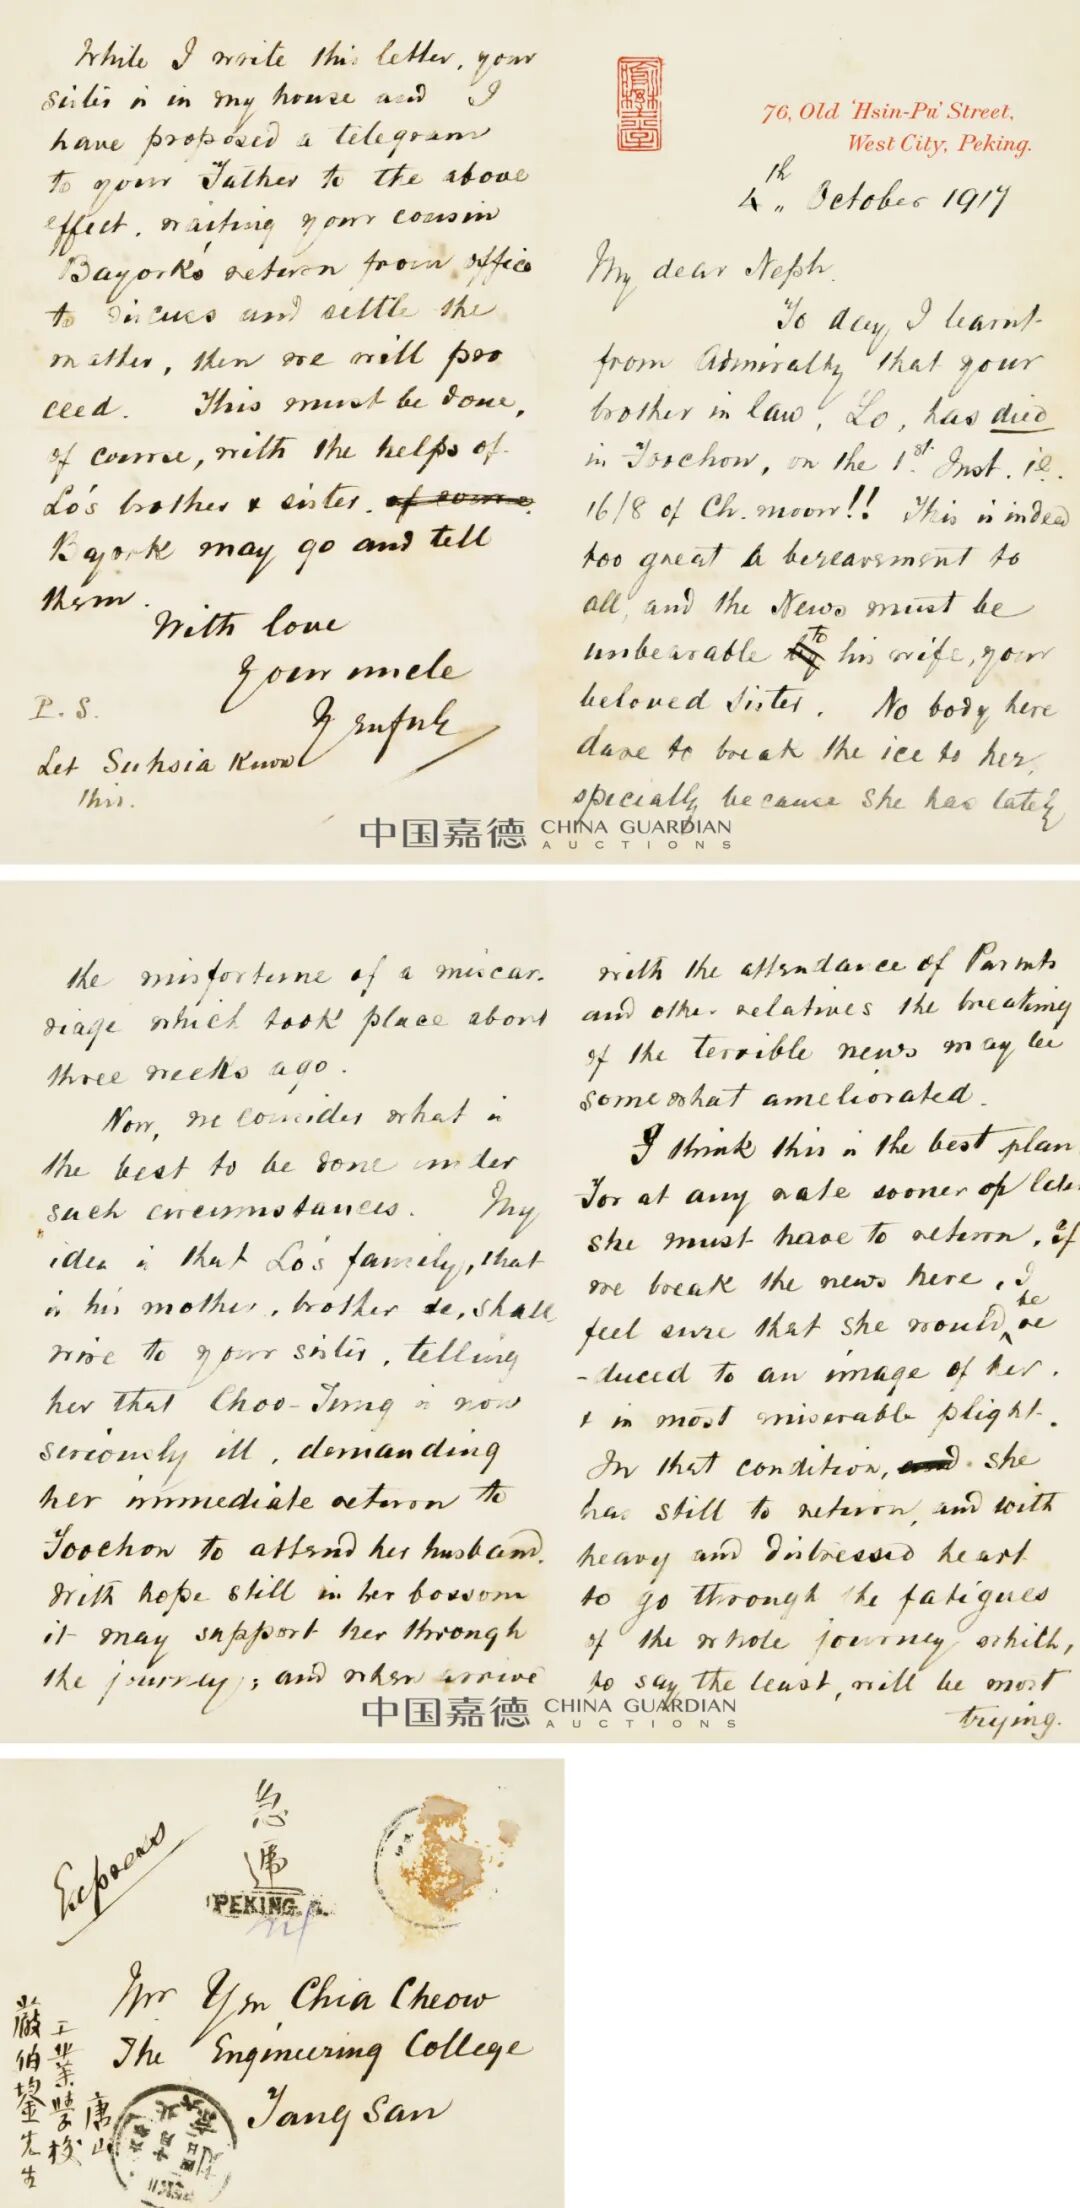 76, Old 'Hsin-Pu' Street,
West City, Peking.
4th „ October 1917
My dear Neph.
To day I learnt
from Admiralty that your
brother in law, Lo, has died
in Foochow, on the 1st. Inst. ie.
16/8 of Ch. moon!! This is indeed
too great a bereavement to
all, and the News must be
unbearable to his wife, your
beloved sister. No body here
dare to break the ice to her,
specially because she has lately
the misfortune of a miscar-
riage which took place about
three weeks ago.
Now, we consider what is
the best to be done under
such circumstances. My
idea is that Lo's family, that
is his mother, brother &c, shall
wire to your sister, telling
her that Choo-Jung is now
seriously ill, demanding
her immediate return to
Foochow to attend her husband.
With hope still in her bossom
it may support her through
the journey; and when arrive
with the attendance of Parents
and other relatives the breaking
of the terrible news may be
somewhat ameliorated.
I think this is the best plan
For at any rate sooner or later
she must have to return. If
we break the news here, I
feel sure that she would be re
-duced to an image of her.
& in most miserable plight.
In that condition, she
has still to return, and with
heavy and distressed heart
to go through the fatigues
of the whole journey which,
to say the least, will be most
trying.
While I write this letter, your
sister is in my house and I
have proposed a telegram
to your Father to the above
effect. waiting your cousin
Bayork's return from office
to discuss and settle the
matter, then we will pro
ceed. This must be done,
of course, with the helps of
Lo's brother & sister. of course.
Bayork may go and tell
them.
With love
Your uncle
Yenfuh
P.S.
Let Suhsia know
this.
中国嘉德 CHINA GUARDIAN
AUCTIONS
中国嘉德 CHINA GUARDIAN
AUCTIONS
Express
急
PEKING.
Mr Yen Chia Cheow
The Engineering College
Tang San
唐山
工業學校
嚴伯鋆先生